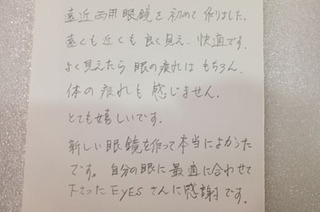 遠近両用眼鏡を初めて作りました。
遠くも近くも良く見え、快適です。
よく見えたら眼の疲れはもちろん、
体の疲れも感じません。
とても嬉しいです。
新しい眼鏡を作って本当によかった
です。自分の眼に最適に合わせて
下さったEYESさんに感謝です。